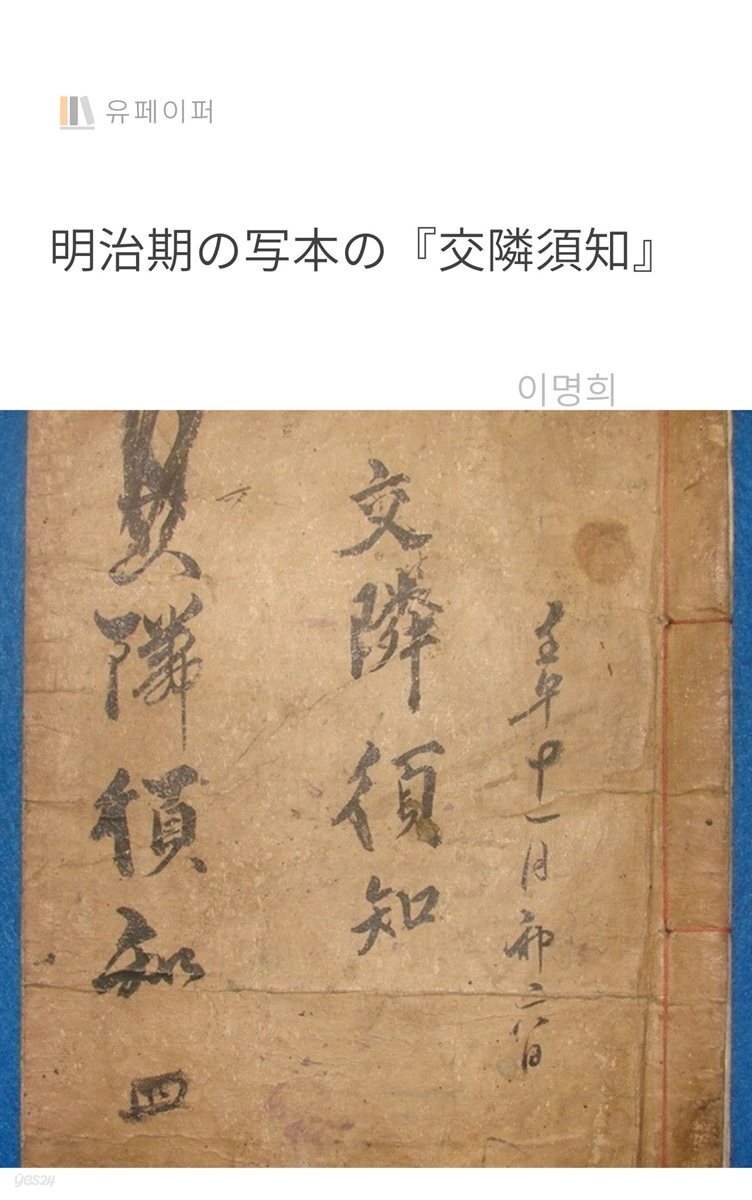 유페이퍼
明治期の写本の『交隣須知』
이명희
壬午十一月初六日
交隣須知
交隣須知 四
yes24